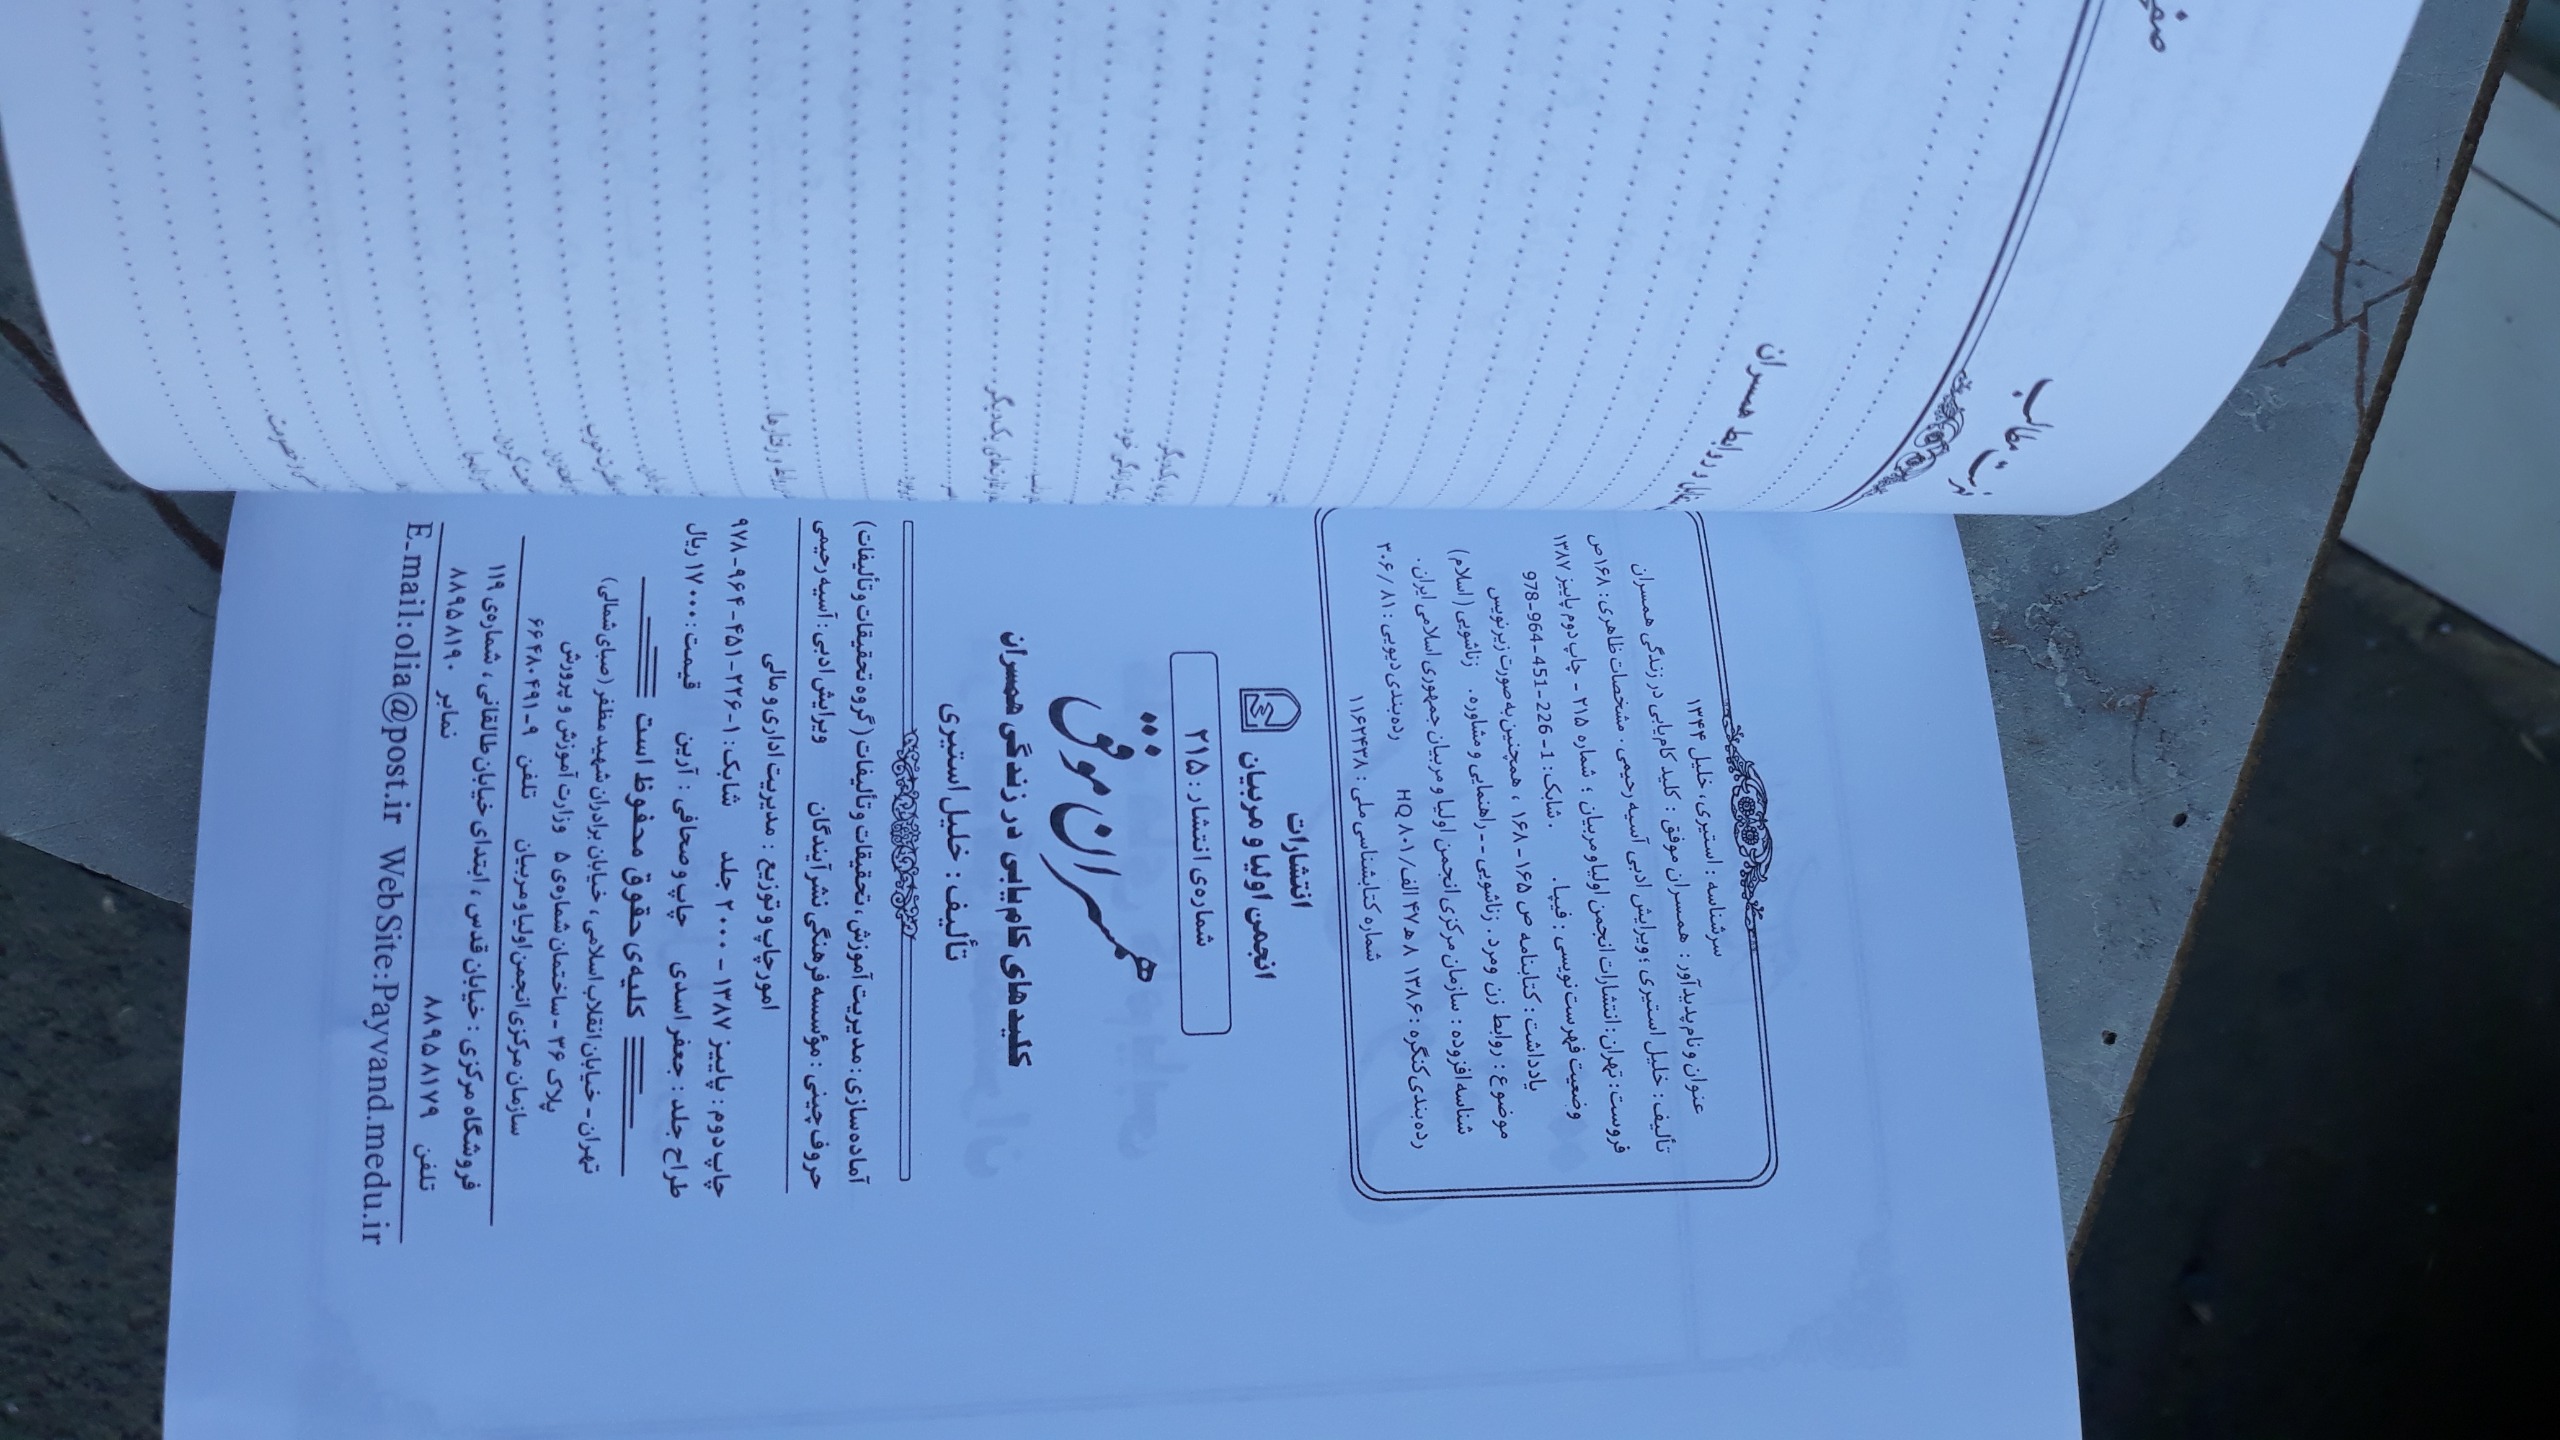 سرشناسه : استیری، خلیل ۱۳۴۴
عنوان و نام پدیدآور : همسران موفق : کلید کام‌یابی در زندگی همسران
تألیف : خلیل استیری ؛ ویرایش ادبی آسیه رحیمی . مشخصات ظاهری : ۱۶۸ص
فروست : تهران : انتشارات انجمن اولیا و مربیان ؛ شماره ۲۱۵ - چاپ دوم پاییز ۱۳۸۷
وضعیت فهرست نویسی : فیپا . شابک : 1-226-451-964-978
یادداشت : کتابنامه ص ۱۶۵-۱۶۸ ، همچنین به صورت زیرنویس
موضوع : روابط زن و مرد . زناشویی -- راهنمایی و مشاوره . زناشویی (اسلام)
شناسه افزوده : سازمان مرکزی انجمن اولیا و مربیان جمهوری اسلامی ایران .
رده‌بندی کنگره : ۱۳۸۶ ۸ ھ ۴۷ الف/ HQ ۸۰۱ رده‌بندی دیویی : ۳۰۶/۸۱
شماره کتابشناسی ملی : ۱۱۶۲۴۳۸
انتشارات
انجمن اولیا و مربیان
شماره‌ی انتشار : ۲۱۵
همسران موفق
کلیدهای کام‌یابی در زندگی همسران
تألیف : خلیل استیری
آماده‌سازی : مدیریت آموزش ، تحقیقات و تألیفات (گروه تحقیقات و تألیفات)
حروف‌چینی : مؤسسه فرهنگی نشر آیندگان ویرایش ادبی : آسیه رحیمی
امور چاپ و توزیع : مدیریت اداری و مالی
چاپ دوم : پاییز ۱۳۸۷ - ۲۰۰۰ جلد شابک : ۱-۲۲۶-۴۵۱-۹۶۴-۹۷۸
طراح جلد : جعفر اسدی چاپ و صحافی : آرین قیمت : ۱۷۰۰۰ ریال
کلیه‌ی حقوق محفوظ است
تهران - خیابان انقلاب اسلامی ، خیابان برادران شهید مظفر (صبای شمالی)
پلاک ۳۶ - ساختمان شماره‌ی ۵ وزارت آموزش و پرورش
سازمان مرکزی انجمن اولیا و مربیان تلفن ۹-۶۶۴۸۰۴۹۱
فروشگاه مرکزی : خیابان قدس ، ابتدای خیابان طالقانی ، شماره‌ی ۱۱۹
تلفن ۸۸۹۵۸۱۷۹ نمابر ۸۸۹۵۸۱۹۰
E_mail:olia@post.ir WebSite:Payvand.medu.ir
مطالب
و روابط همسران
یکدیگر